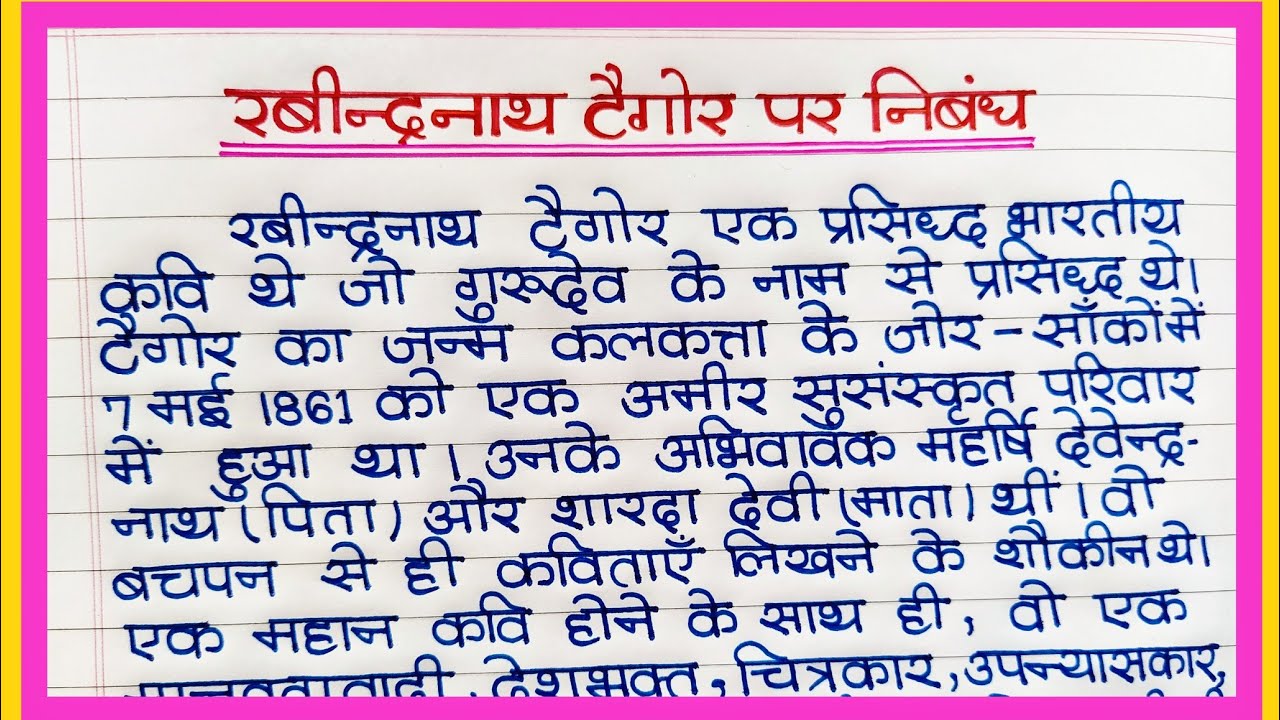 रबीन्द्रनाथ टैगोर पर निबंध
रबीन्द्रनाथ टैगोर एक प्रसिध्द भारतीय
कवि थे जो गुरूदेव के नाम से प्रसिध्द थे।
टैगोर का जन्म कलकत्ता के जोर-साँकों में
7 मई 1861 को एक अमीर सुसंस्कृत परिवार
में हुआ था। उनके अभिवावक महर्षि देवेन्द्र-
नाथ (पिता) और शारदा देवी (माता) थीं। वो
बचपन से ही कविताएँ लिखने के शौकीन थे।
एक महान कवि होने के साथ ही, वो एक
मानवतावादी, देशभक्त, चित्रकार, उपन्यासकार,